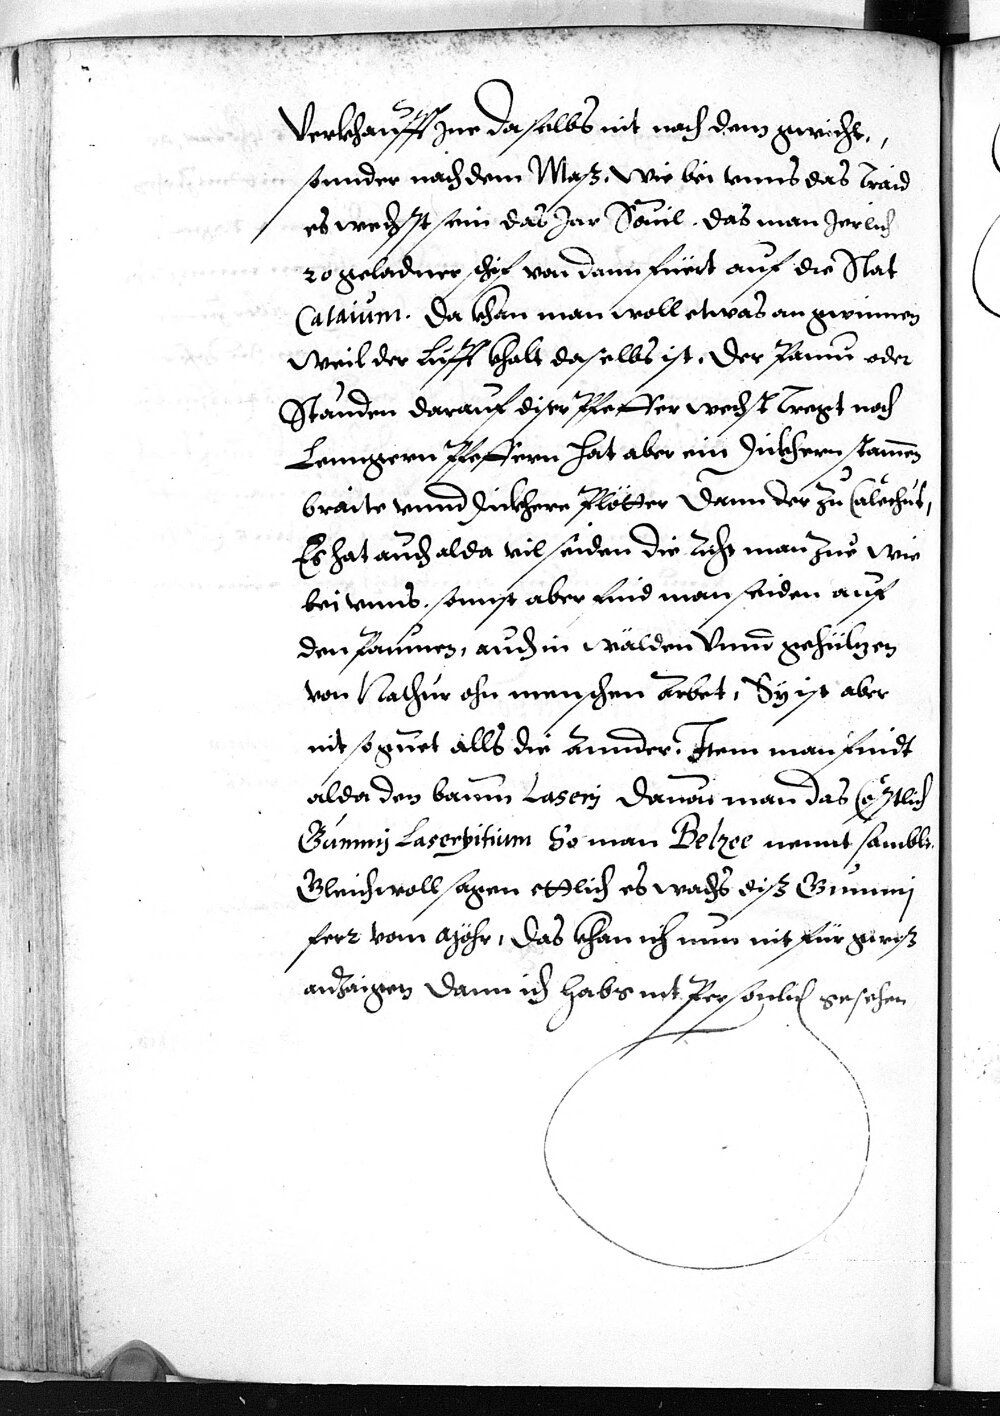 Verkhaufft Jne daselbs nit nach dem gwicht,
sonnder nach dem Maß, wie bei vnns das Traid
es wechst sein das Jar Souil, das man Jerlich
20 geladner schif von dann füert auf die Stat
Cataium. Da khan man woll etwas an gwinnen
weil der Lufft khalt daselbs ist, Der Paum oder
Stauden darauf diser Pfeffer wechst Tregt noch
Lenngern Pfeffern hat aber ein dickhern stamen
braite vnnd dickhere Plötter Dann der zu Calechut,
Es hat auch alda vil seiden die zicht man Jne wie
bei vnns, sonnst aber find man seiden auf
den Paumen, auch in wälden Vnnd gehültzen
von Nathur ohn menschen Arbet, Sy ist aber
nit so guet alls die Annder. Item man findt
alda den baum Laserj Dauon man das Cöstlich
Gummj Laserpitium So man Belzoe nennt samblt.
Gleichwoll sagen ettlich es wachs diß Gummj
ferr vom Möhr, Das khan ich nun nit für gwiß
anzaigen Dann ich habs nit Persönlich gesehen